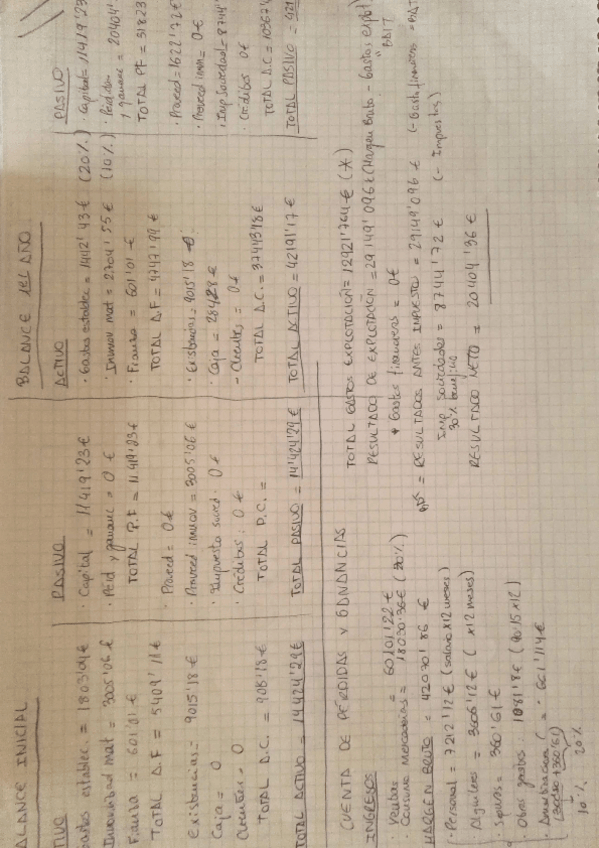 BALANCE INICIAL
ACTIVO
Gastos establec. = 1803'04 €
Inmovilizad mat = 3005'06 €
Fianza = 601'01 €
TOTAL A.F = 5409'11 €
Existencias = 9015'18 €
Caja = 0
Clientes = 0
TOTAL A.C. = 9015'18 €
TOTAL ACTIVO = 14424'29 €
PASIVO
Capital = 11419'23 €
· Pérd y gananc = 0 €
TOTAL P.F = 11.419'23 €
· Proveed = 0 €
· Proveed inmov = 3005'06 €
· Impuesto socied: 0 €
· Créditos: 0 €
TOTAL P.C. =
TOTAL PASIVO = 14'424'29 €
BALANCE 1er AÑO
ACTIVO
· Gastos establec = 1442'43 € (20%)
· Inmov mat = 2704'55 € (10%)
· Fianza = 601'01 €
TOTAL A.F = 4747'99 €
· Existencias = 9015'18 €
· Caja = 28428 €
- Clientes = 0 €
TOTAL A.C. = 37443'18 €
TOTAL ACTIVO = 42191'17 €
PASIVO
· Capital = 11419'23
· Pérdidas
y gananc = 20404'
TOTAL PF = 31823
· Proveed = 1622'72 €
· Proveed inmov = 0 €
· Imp sociedad = 8744'
· Créditos 0 €
TOTAL P.C = 10367
TOTAL PASIVO = 421
CUENTA DE PÉRDIDAS Y GANANCIAS
INGRESOS
Ventas = 60101'22 €
· Consumo mercaderías = 18030'36 € (30%)
MARGEN BRUTO = 42070'86 €
· Personal = 7212'12 € (salario x12 meses)
Alquileres = 3606'12 € ( x12 meses)
· Seguros = 360'61 €
· Otros gastos: 1081'8 € (90'15x12)
· Amortización ( = 661'114 €
(300'50 + 360'61)
10% 20%
TOTAL GASTOS EXPLOTACIÓN = 12921'764 € (*)
RESULTADO DE EXPLOTACIÓN = 29149'096 € (Margen Bruto - Gastos explot)
"BAIT
* Gastos financieros = 0 €
RESULTADOS ANTES IMPUESTO = 29149'096 € (- Gasto financieros = BAT
Imp. Sociedades = 8744'72 € (- Impuestos)
30% beneficio
RESULTADO NETO = 20404'36 €